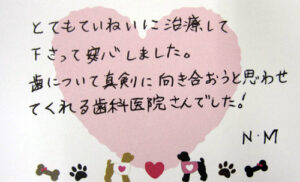 とてもていねいに治療して
下さって安心しました。
歯について真剣に向き合おうと思わせ
てくれる歯科医院さんでした!
N・M